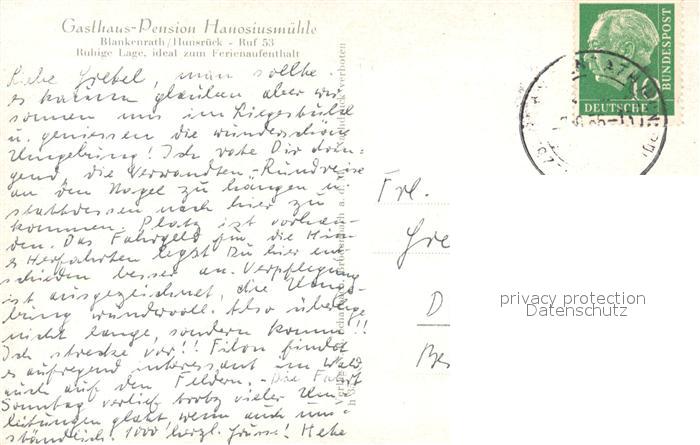 Gasthaus-Pension Hanosiusmühle
Blankenrath/Hunsrück - Ruf 53
Ruhige Lage, ideal zum Ferienaufenthalt
Liebe Gretel, man sollte
es kaum glauben aber wir
sonnen uns im Liegestuhl
u. geniessen die wunderschöne
Umgebung! Ich rate Dir drin-
gend, die Verwandten-Rundreise
an den Nagel zu hängen u.
stattdessen nach hier zu
kommen. Platz ist vorhan-
den. Das Fahrgeld für die Hin-
u. Herfahrten legst Du hier ent-
schieden besser an. Verpflegung
ist ausgezeichnet, die Umge-
bung wundervoll. Also überlege
nicht lange, sondern komm!!
Ich strecke vor!! Filou findet
es aufregend interessant im Wald,
auch auf den Feldern. - Die Fahrt
Sonntag verlief trotz vieler Um-
leitungen glatt wenn auch um-
ständlich. 1000 herzl. Grüsse!
Frl.
Gre
D
Be
DEUTSCHE
BUNDESPOST
10
privacy protection
Datenschutz